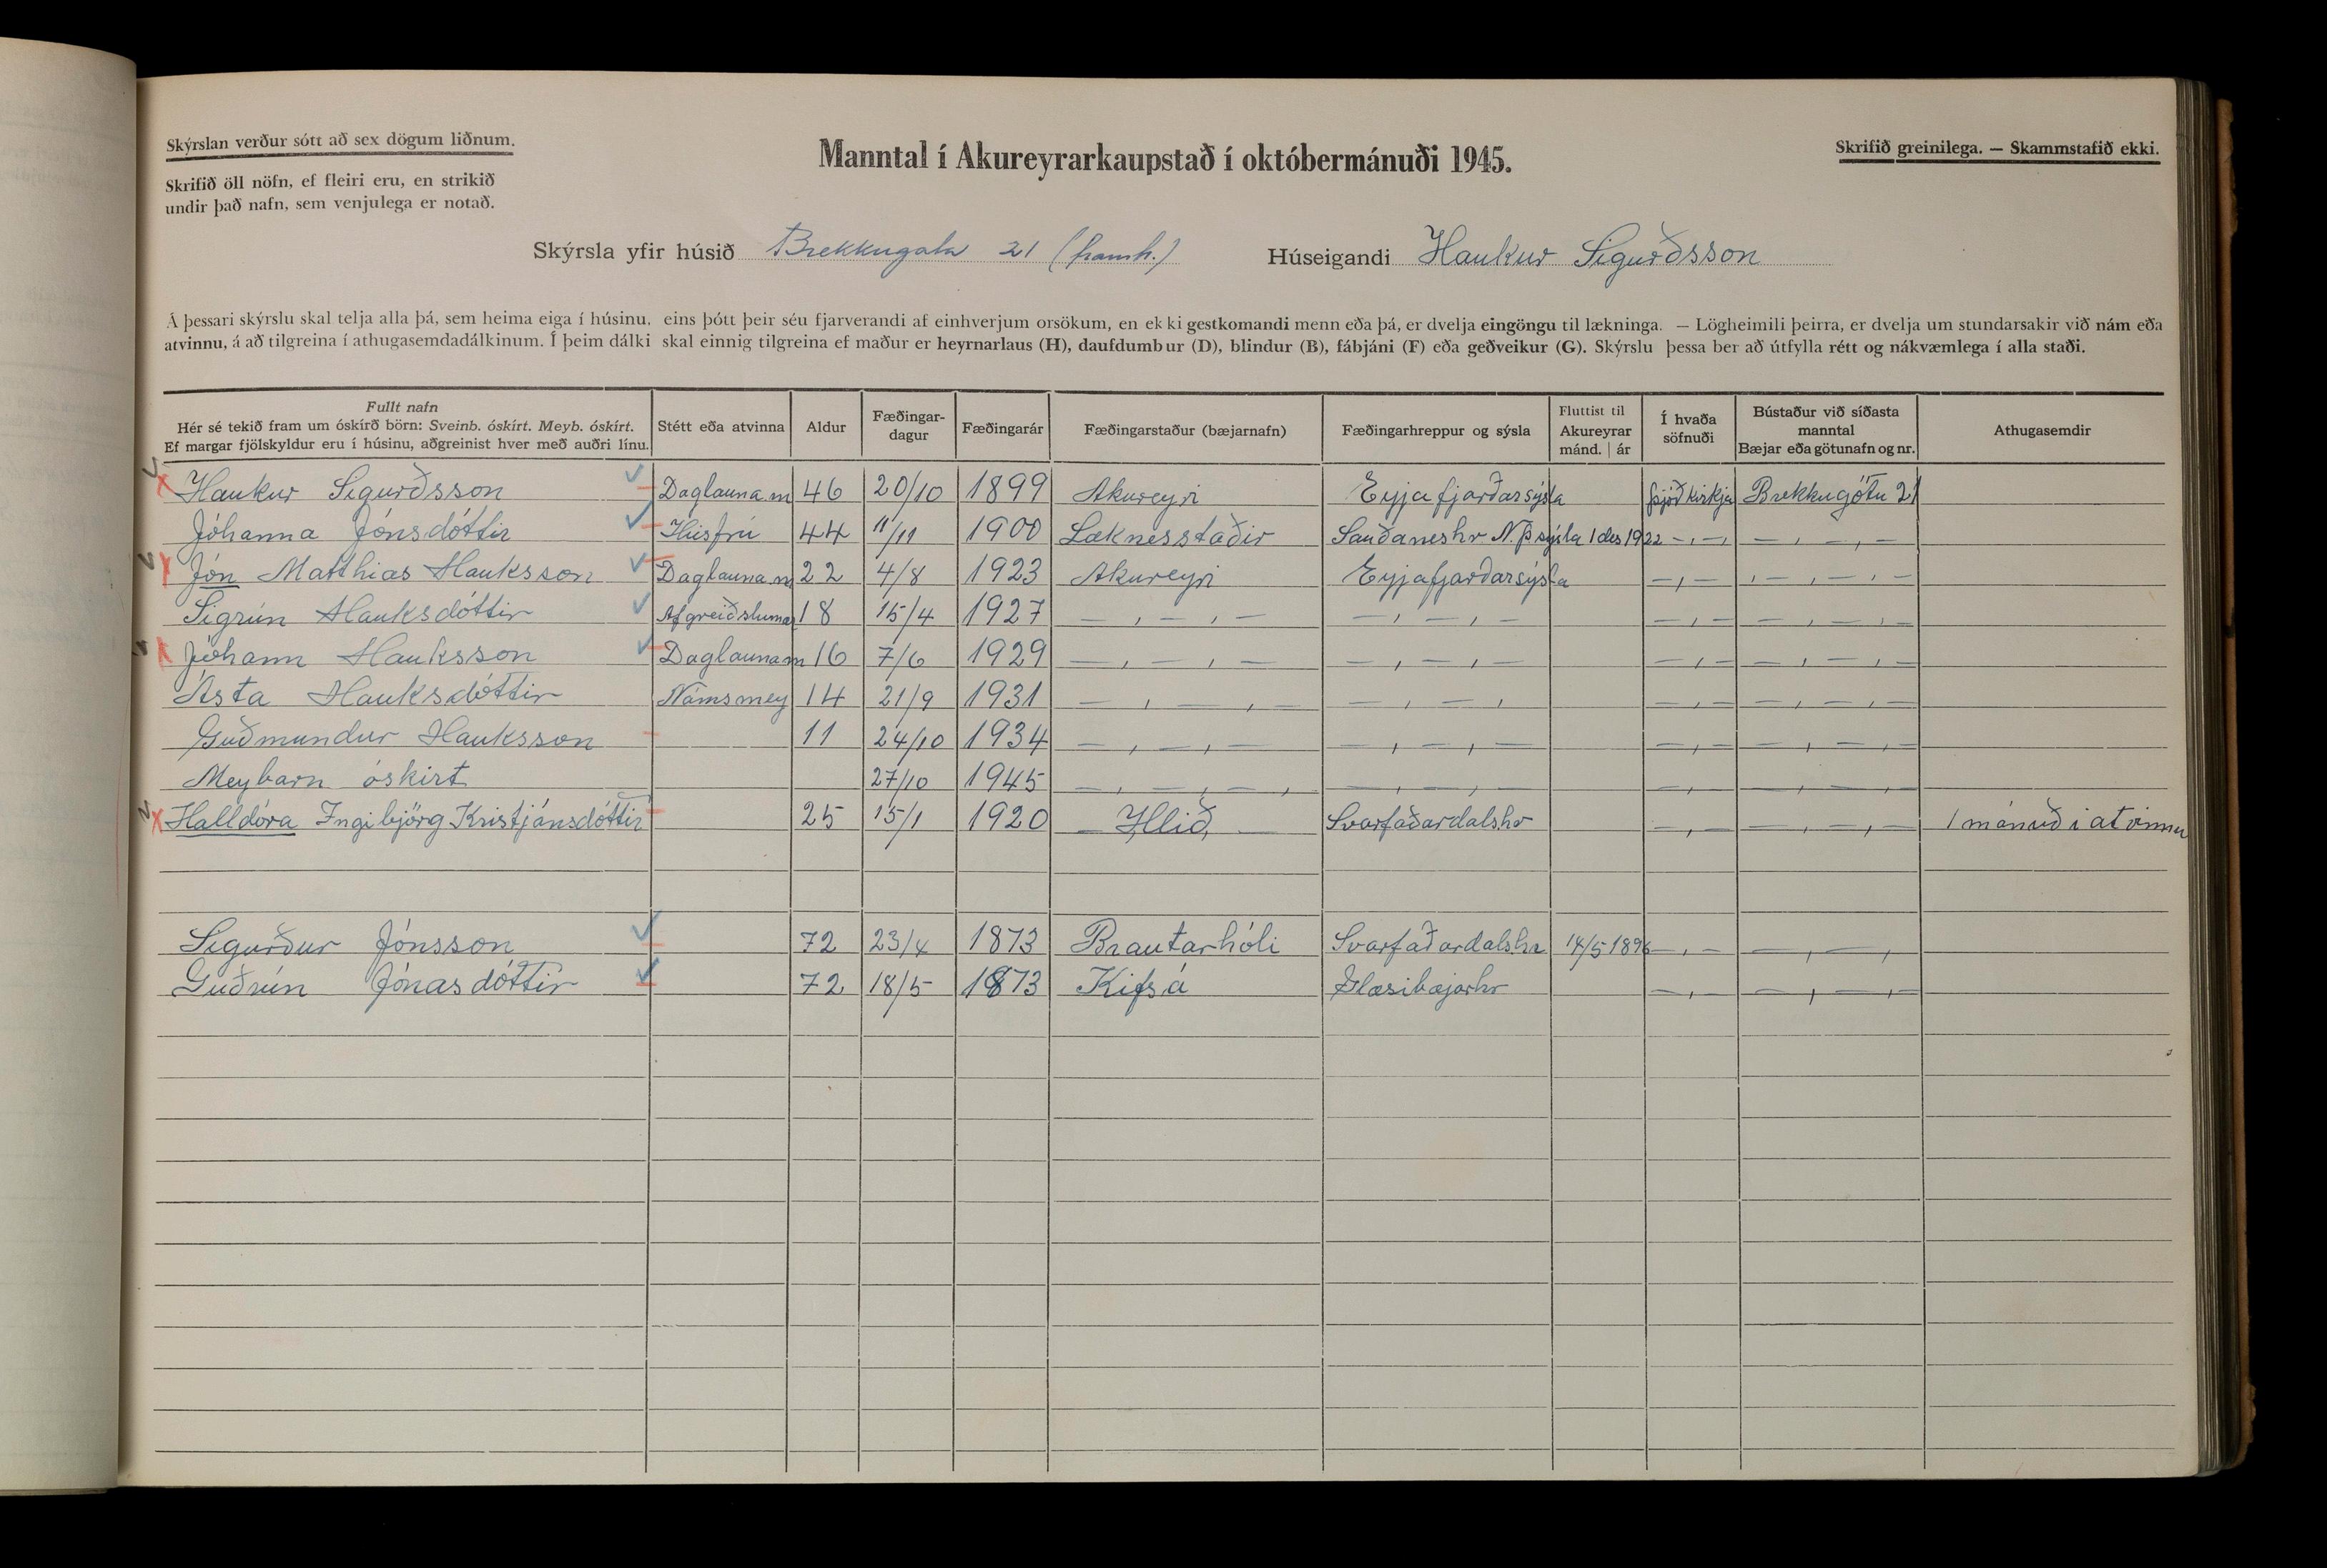 Skýrslan verður sótt að sex dögum liðnum.
Skrifið öll nöfn, ef fleiri eru, en strikið
undir það nafn, sem venjulega er notað.
Manntal í Akureyrarkaupstað í októbermánuði 1945.
Skrifið greinilega. — Skammstafið ekki.
Skýrsla yfir húsið Brekkugata 21 (framh.) Húseigandi Haukur Sigurðsson
Á þessari skýrslu skal telja alla þá, sem heima eiga í húsinu, eins þótt þeir séu fjarverandi af einhverjum orsökum, en ekki gestkomandi menn eða þá, er dvelja eingöngu til lækninga. — Lögheimili þeirra, er dvelja um stundarsakir við nám eða
atvinnu, á að tilgreina í athugasemdadálkinum. Í þeim dálki skal einnig tilgreina ef maður er heyrnarlaus (H), daufdumbur (D), blindur (B), fábjáni (F) eða geðveikur (G). Skýrslu þessa ber að útfylla rétt og nákvæmlega í alla staði.
Fullt nafn
Hér sé tekið fram um óskírð börn: Sveinb. óskírt. Meyb. óskírt.
Ef margar fjölskyldur eru í húsinu, aðgreinist hver með auðri línu.
Stétt eða atvinna
Aldur
Fæðingar-
dagur
Fæðingarár
Fæðingarstaður (bæjarnafn)
Fæðingarhreppur og sýsla
Fluttist til
Akureyrar
mánd. | ár
Í hvaða
söfnuði
Bústaður við síðasta
manntal
Bæjar eða götunafn og nr.
Athugasemdir
Haukur Sigurðsson Daglauna.m 46 20/10 1899 Akureyri Eyjafjarðarsýsla þjóðkirkja Brekkugötu 21
Jóhanna Jónsdóttir Húsfrú 44 11/11 1900 Læknesstaðir Sauðaneshr N.Þ sýsla 1 des 1922 — , — , — , — , —
Jón Matthias Hauksson Daglauna.m 22 4/8 1923 Akureyri Eyjafjarðarsýsla — , — , — , — , —
Sigrún Hauksdóttir Afgreiðslumær 18 15/4 1927 — , — , — — , — , — — , — — , — , —
Jóhann Hauksson Daglaunam 16 7/6 1929 — , — , — — , — , — — , — — , — , —
Ásta Hauksdóttir Námsmey 14 21/9 1931 — , — , — — , — , — , — — , — , —
Guðmundur Hauksson 11 24/10 1934 — , — , — — , — , — — , — — , — , —
Meybarn óskirt 27/10 1945 — , — , — , — , — , — — , — — , — , —
Halldóra Ingibjörg Kristjánsdóttir 25 15/1 1920 Hlið Svarfaðardalshr — , — — , — , — 1 mánuð i atvinnu
Sigurður Jónsson 72 23/4 1873 Brautarhóli Svarfaðardalshr 14/5 1896 — , — — , — , —
Guðrún Jónasdóttir 72 18/5 1873 Kifsá Glæsibæjarhr — , — — , — , —